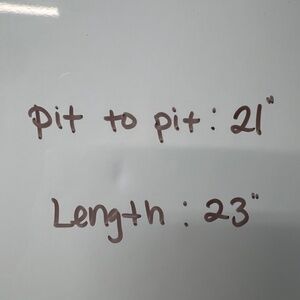 pit to pit: 21"
Length: 23"